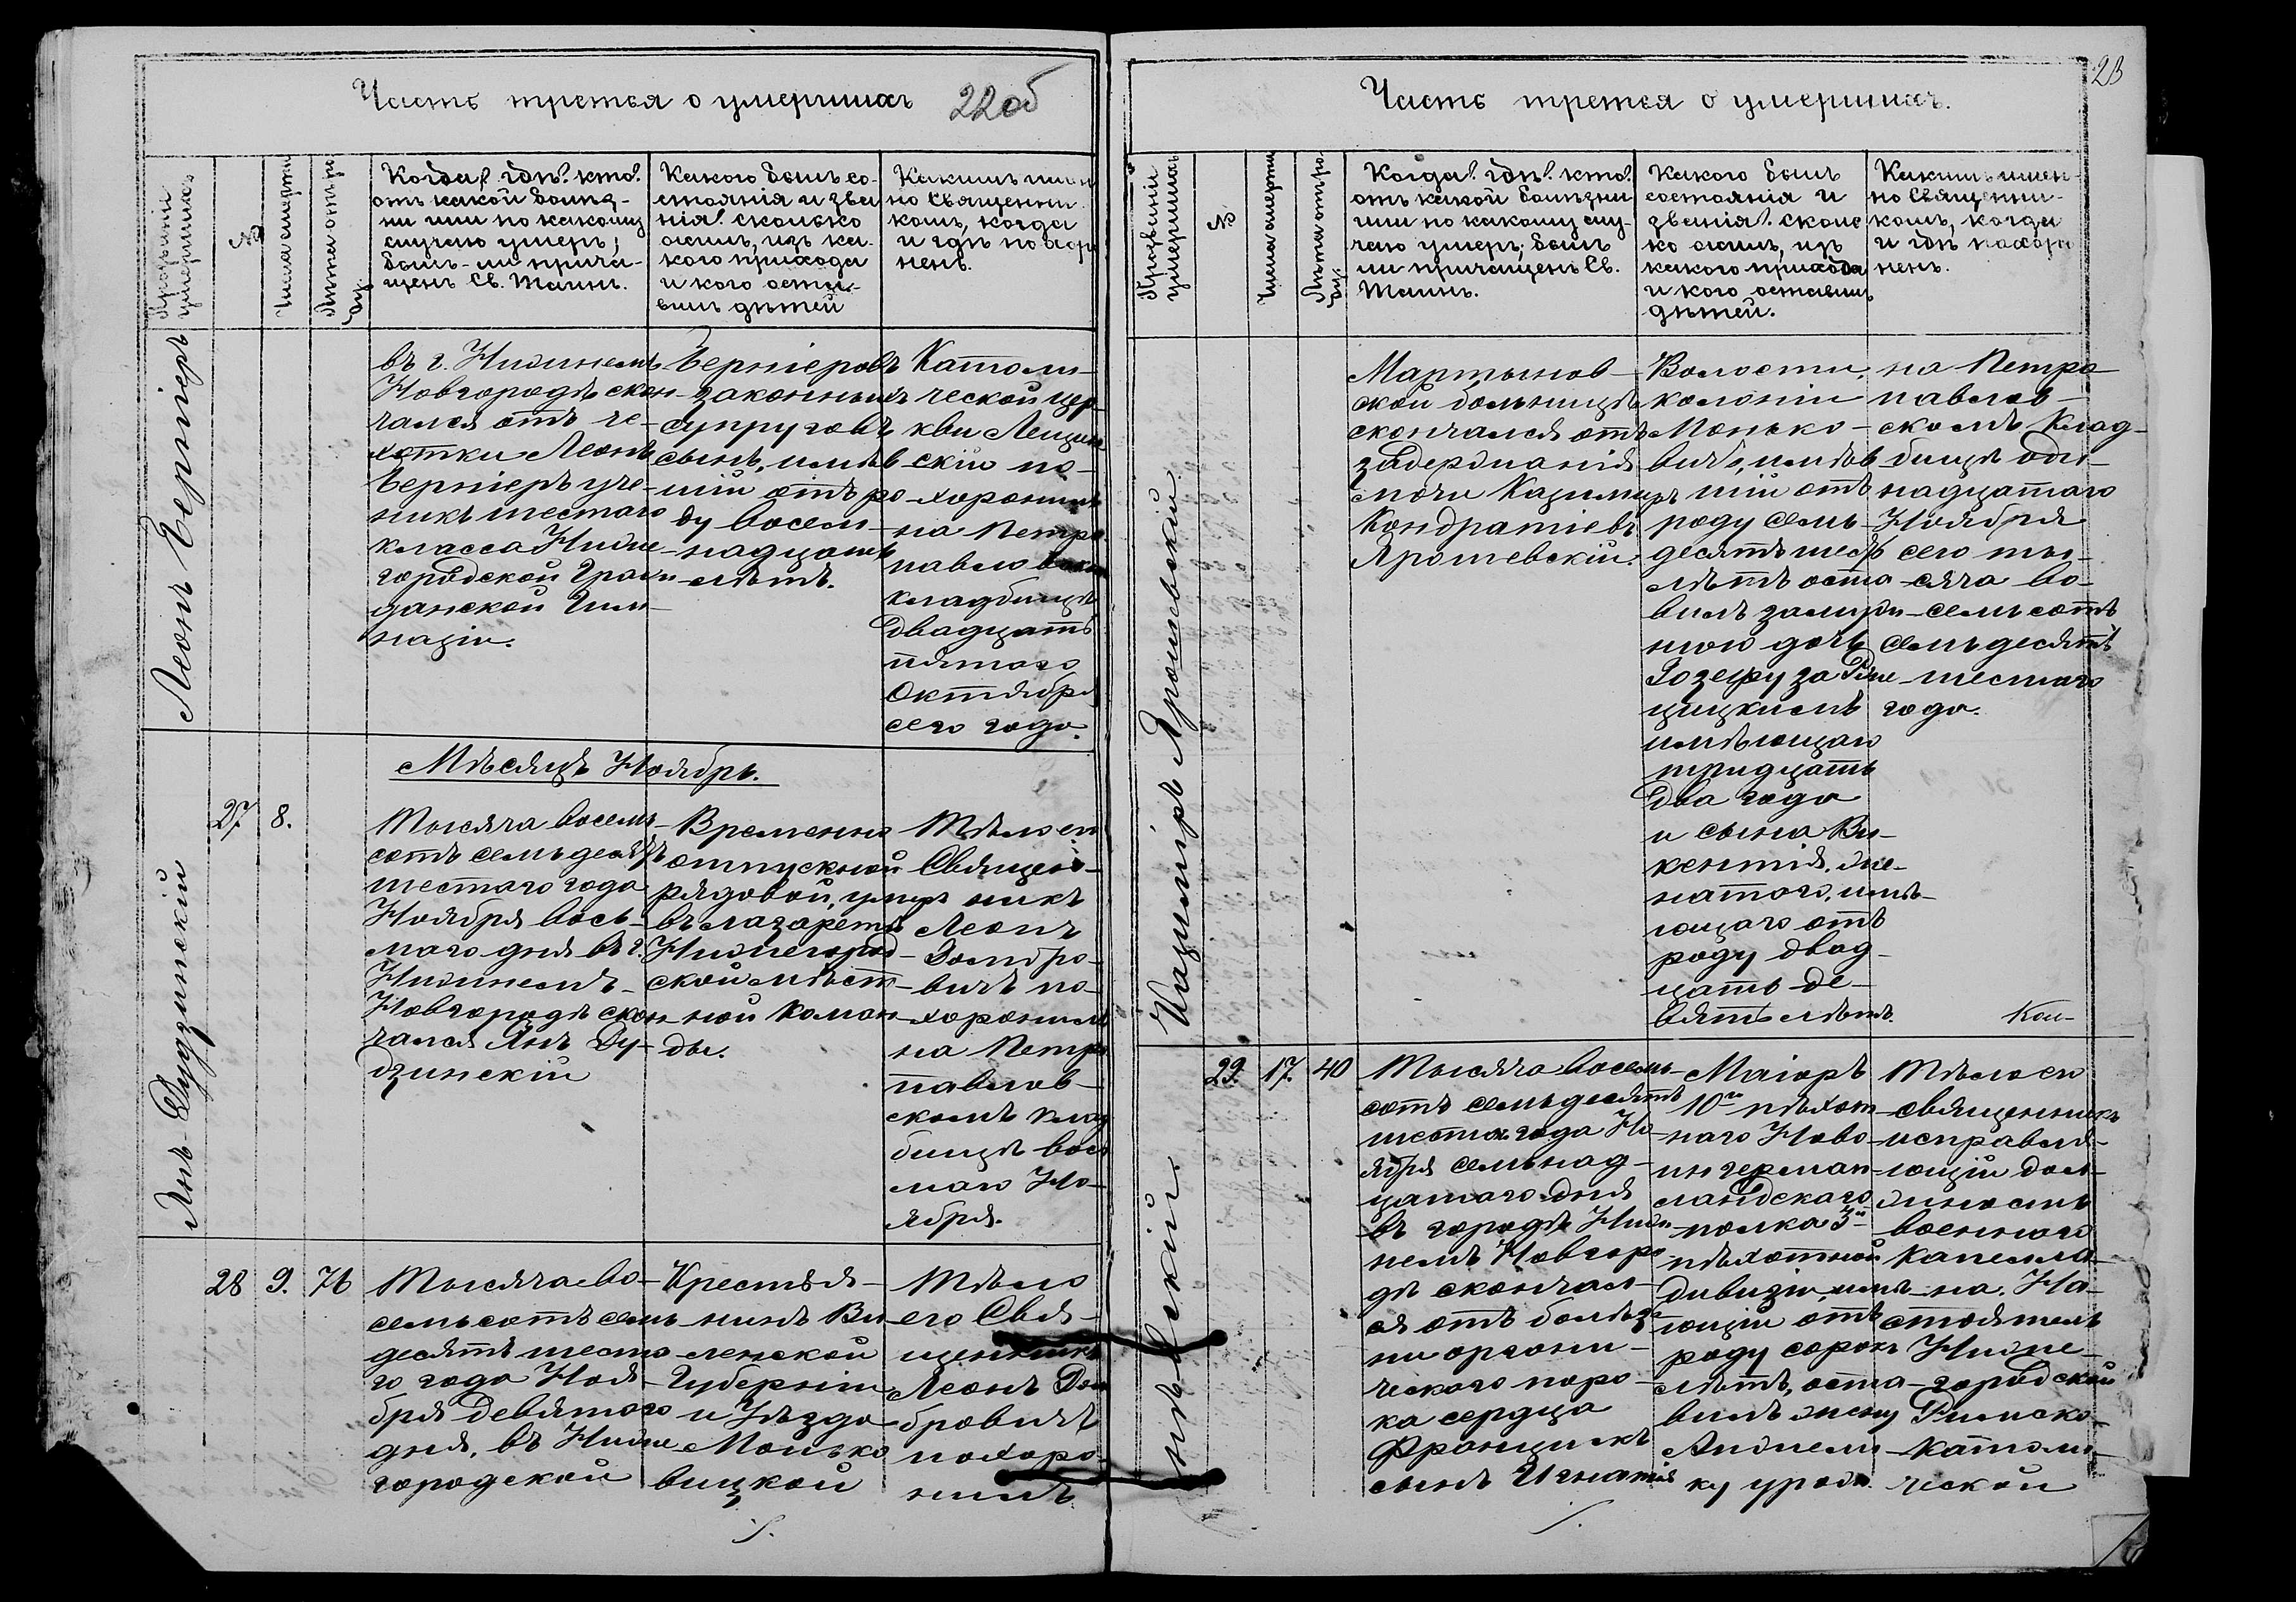 Часть третья о умершихъ 22об
Прозванiй умершихъ
№
Числа смерти
Лѣта отъ роду
Когда? гдѣ? кто?
отъ какой болѣз-
ни или по какому
случаю умеръ;
былъ-ли прича-
щенъ Св. Таинъ.
Какого былъ со-
стоянiя и зва-
нiя? сколько
жилъ, изъ ка-
кого прихода
и кого оста-
вилъ дѣтей
Какимъ имен
но Священни-
комъ, когда
и гдѣ похоро
ненъ.
Леонъ Бернiеръ
въ г. Нижнемъ
Новгородѣ скон-
чался отъ ча-
хотки Леонъ
Бернiеръ уче-
никъ шестаго
класса Ниже-
городской Граж-
данской Гим-
назiи.
Бернiеровъ
законныхъ
супруговъ
сынъ, имѣв
шiй отъ ро-
ду восем-
надцать
лѣтъ.
Католи-
ческой цер-
кви Лещин
скiй по-
хоронилъ
на Петро
павловскомъ
кладбищѣ
двадцать
пятаго
Октября
сего года.
Мѣсяцъ Ноябрь.
Янъ Дудзинскiй
27 8.
Тысяча восемь
сотъ семьдесятъ
шестаго года
Ноября вось-
маго дня въ г.
Нижнемъ-
Новгородѣ скон-
чался Янъ Ду-
дзинскiй
Временно
отпускной
рядовой, умеръ
въ лазаретѣ
Нижегород-
ской мѣст-
ной коман-
ды.
Тѣло его
Священ-
никъ
Леонъ
Домбро-
вичъ по-
хоронилъ
на Петро
павлов-
скомъ клад
бищѣ вось
маго Но-
ября.
28 9. 76
Тысяча во-
семьсотъ семь
десятъ шеста
го года Ноя-
бря девятаго
дня, въ Ниже
городской
Крестья-
нинъ Ви-
ленской
Губернiи
и Уѣзда
Монько
вицкой
Тѣло
его Свя-
щенникъ
Леонъ Дом
бровичъ
похоро-
нилъ
Часть третья о умершихъ.
23
Прозванiй умершихъ
№
Числа смерти
Лѣта отъ ро-
ду.
Когда? гдѣ? кто?
отъ какой болѣзни
или по какому слу-
чаю умеръ; былъ
ли причащенъ Св.
Таинъ.
Какого былъ
состоянiя и
званiя? сколь
ко жилъ, изъ
какого прихода
и кого оставилъ
дѣтей.
Какимъ имен-
но Священни-
комъ, когда
и гдѣ похоро
ненъ.
Казимiръ Ярошевскiй.
Мартынов-
ской больницѣ
скончался отъ
задержанiя
мочи Казимиръ
Кондратiевъ
Ярошевскiй.
Волости,
колонiи
Монько-
вичъ, имѣв
шiй отъ
роду семь-
десятъ шесть
лѣтъ оста-
вилъ замуж-
нюю дочь
Юзефу за
цицкимъ
имѣющаю
тридцать
два года
и сына Ви-
кентiя, же-
натаго, имѣ-
ющаго отъ
роду двад-
цать де-
вять лѣтъ.
на Петро
павлов-
скомъ Клад-
бищѣ оди-
надцатаго
Ноября
сего ты-
сяча во-
семь сотъ
семьдесятъ
шестаго
года.
Кон-
нѣвскiй.
29. 17. 40
Тысяча восемь-
сотъ семьдесятъ
шестаго года Но-
ября семнад-
цатаго дня
въ городѣ Ниж-
немъ Новгоро
дѣ скончал-
ся отъ болѣз-
ни органи-
ческаго поро-
ка сердца
Францискъ
сынъ Игнатiя
Маiоръ
10го пѣхот-
наго Ново-
ингерман-
ландскаго
полка 3й
пѣхотной
дивизiи, имѣ-
ющiй отъ
роду сорокъ
лѣтъ, оста-
вилъ жену
Анжели-
ку урожд.
Тѣло его
священникъ
исправля-
ющiй дол-
жность
военнаго
капелла-
на, На-
стоятель
Ниже-
городской
Римско-
Католи-
ческой